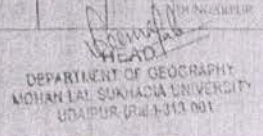 HEAD
DEPARTMENT OF GEOGRAPHY
MOHAN LAL SUKHADIA UNIVERSITY
UDAIPUR (Raj.)-313 001